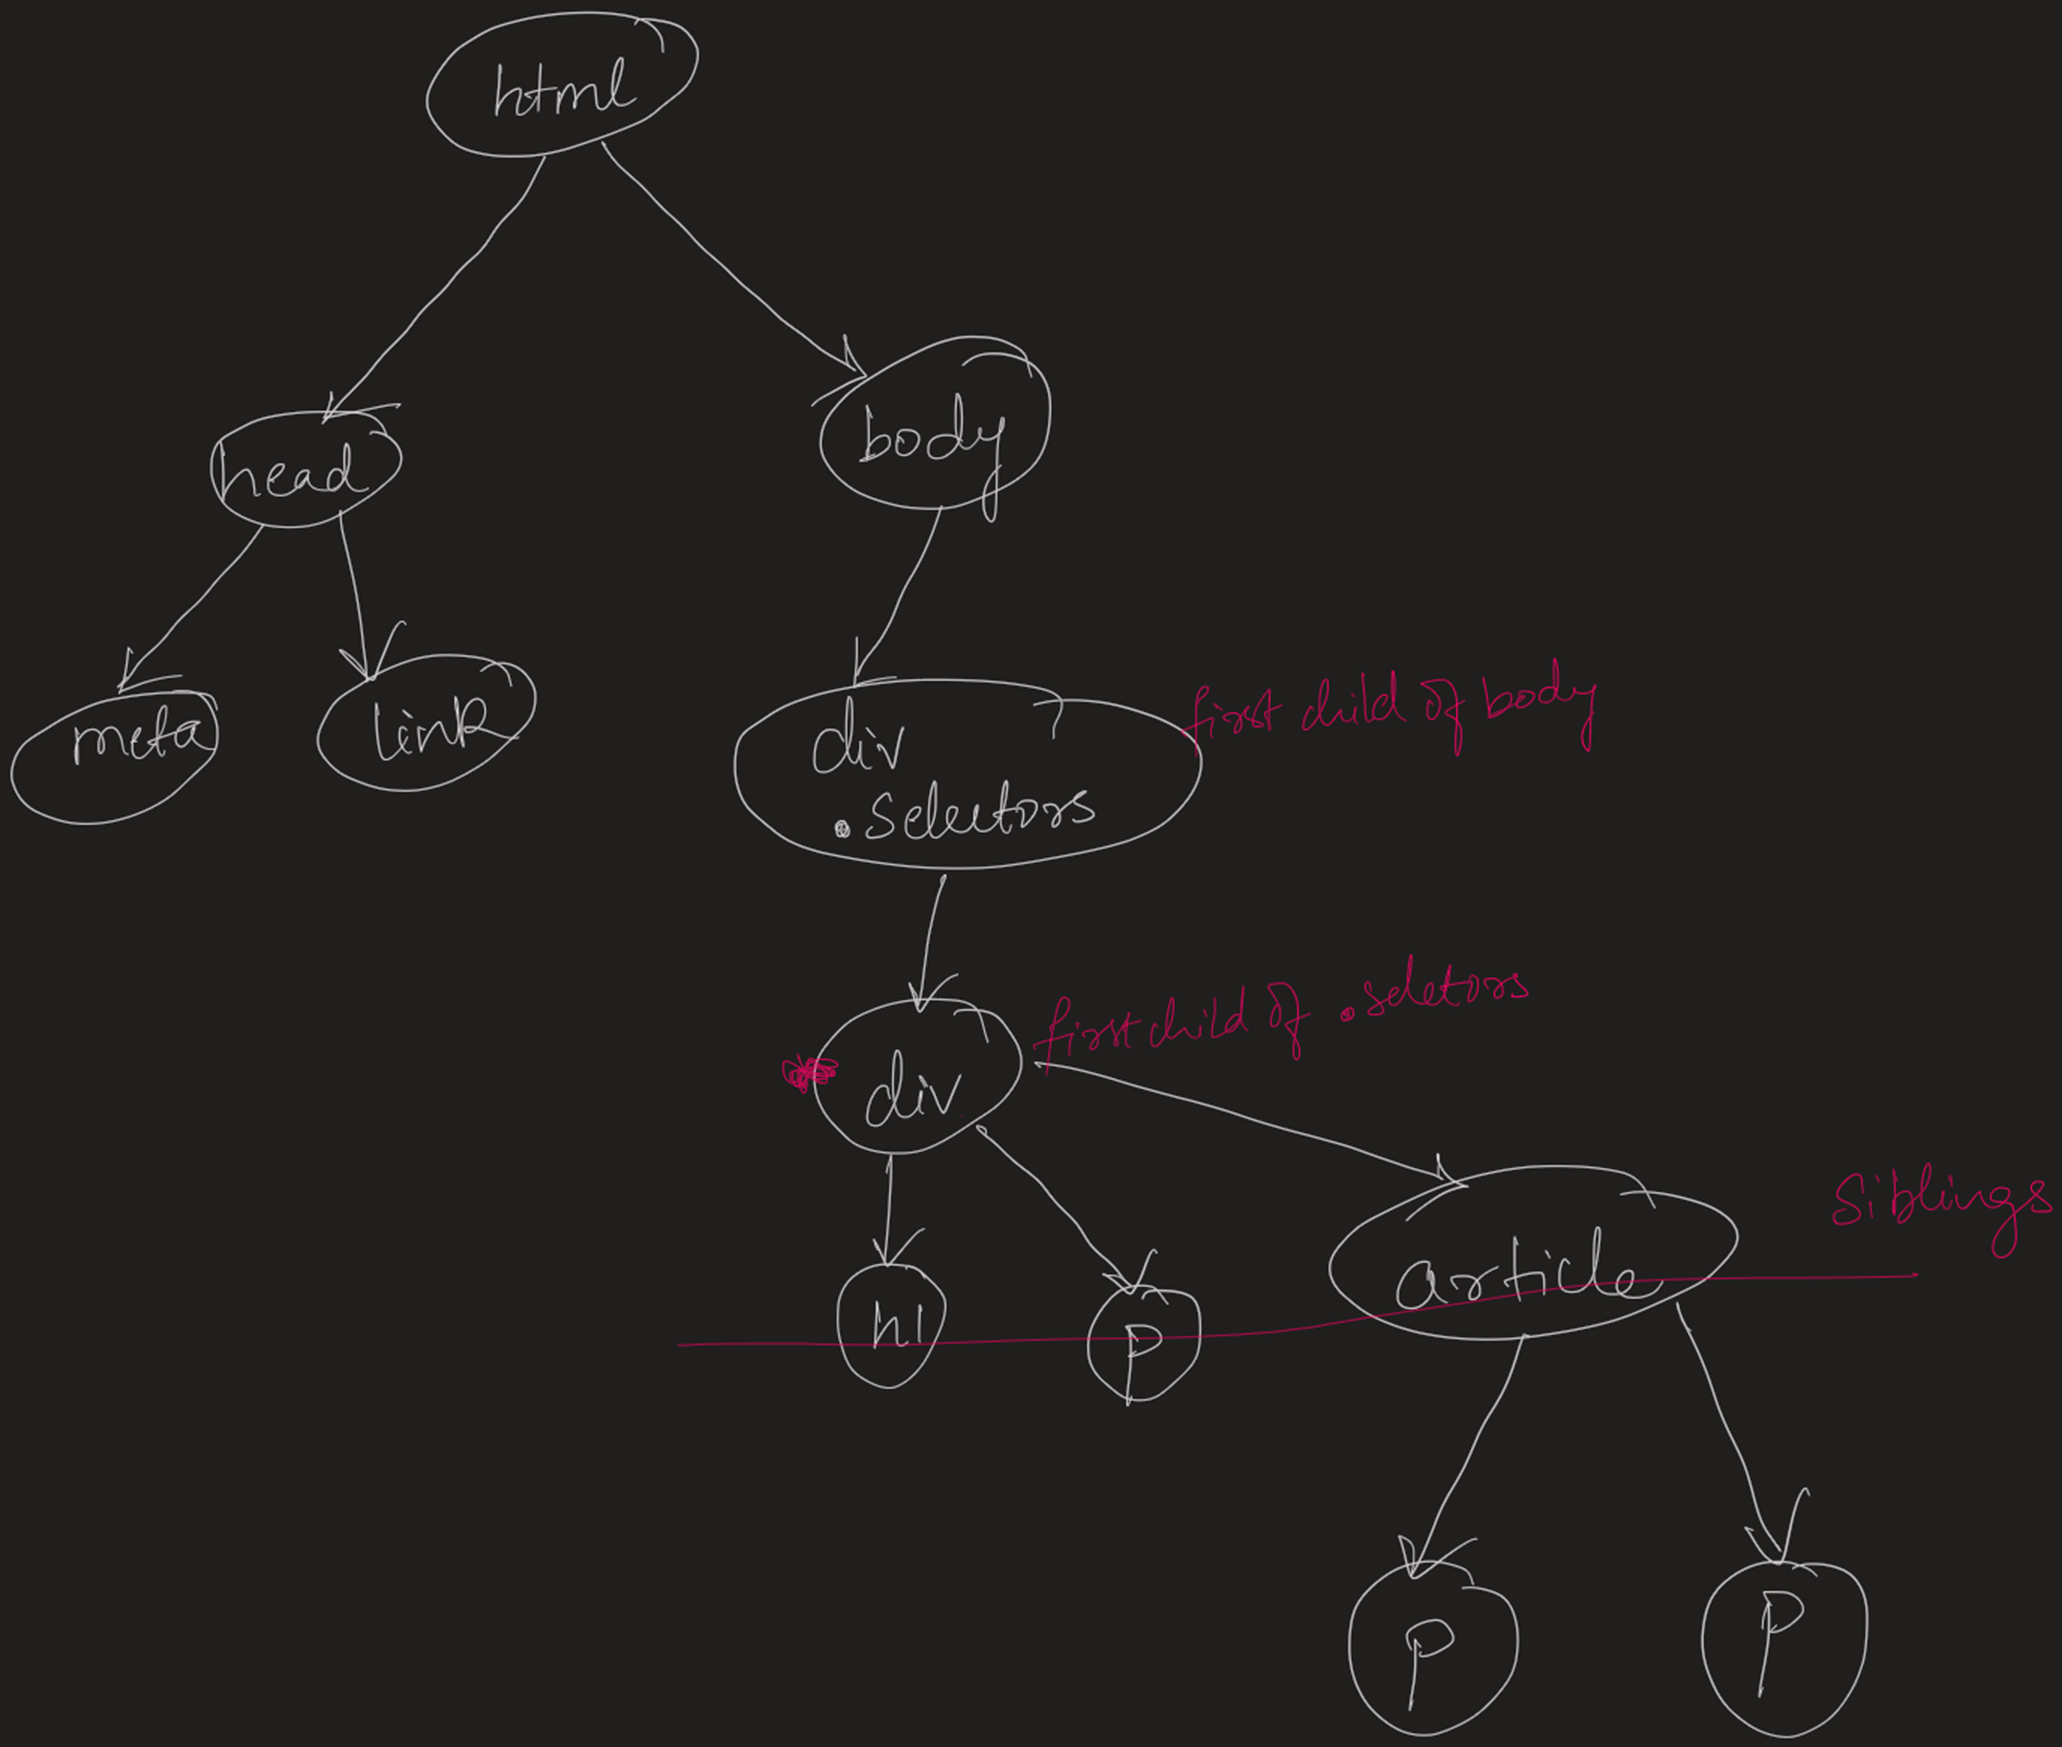 html
head
body
meta
link
div
.Selectors
first child of body
div
first child of .selectors
h1
p
article
Siblings
p
p